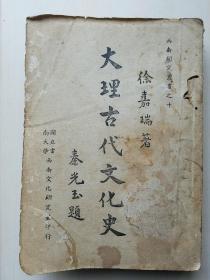 西南研究叢書之十
徐嘉瑞著
大理古代文化史
秦光玉題
國立雲南大學西南文化研究室印行